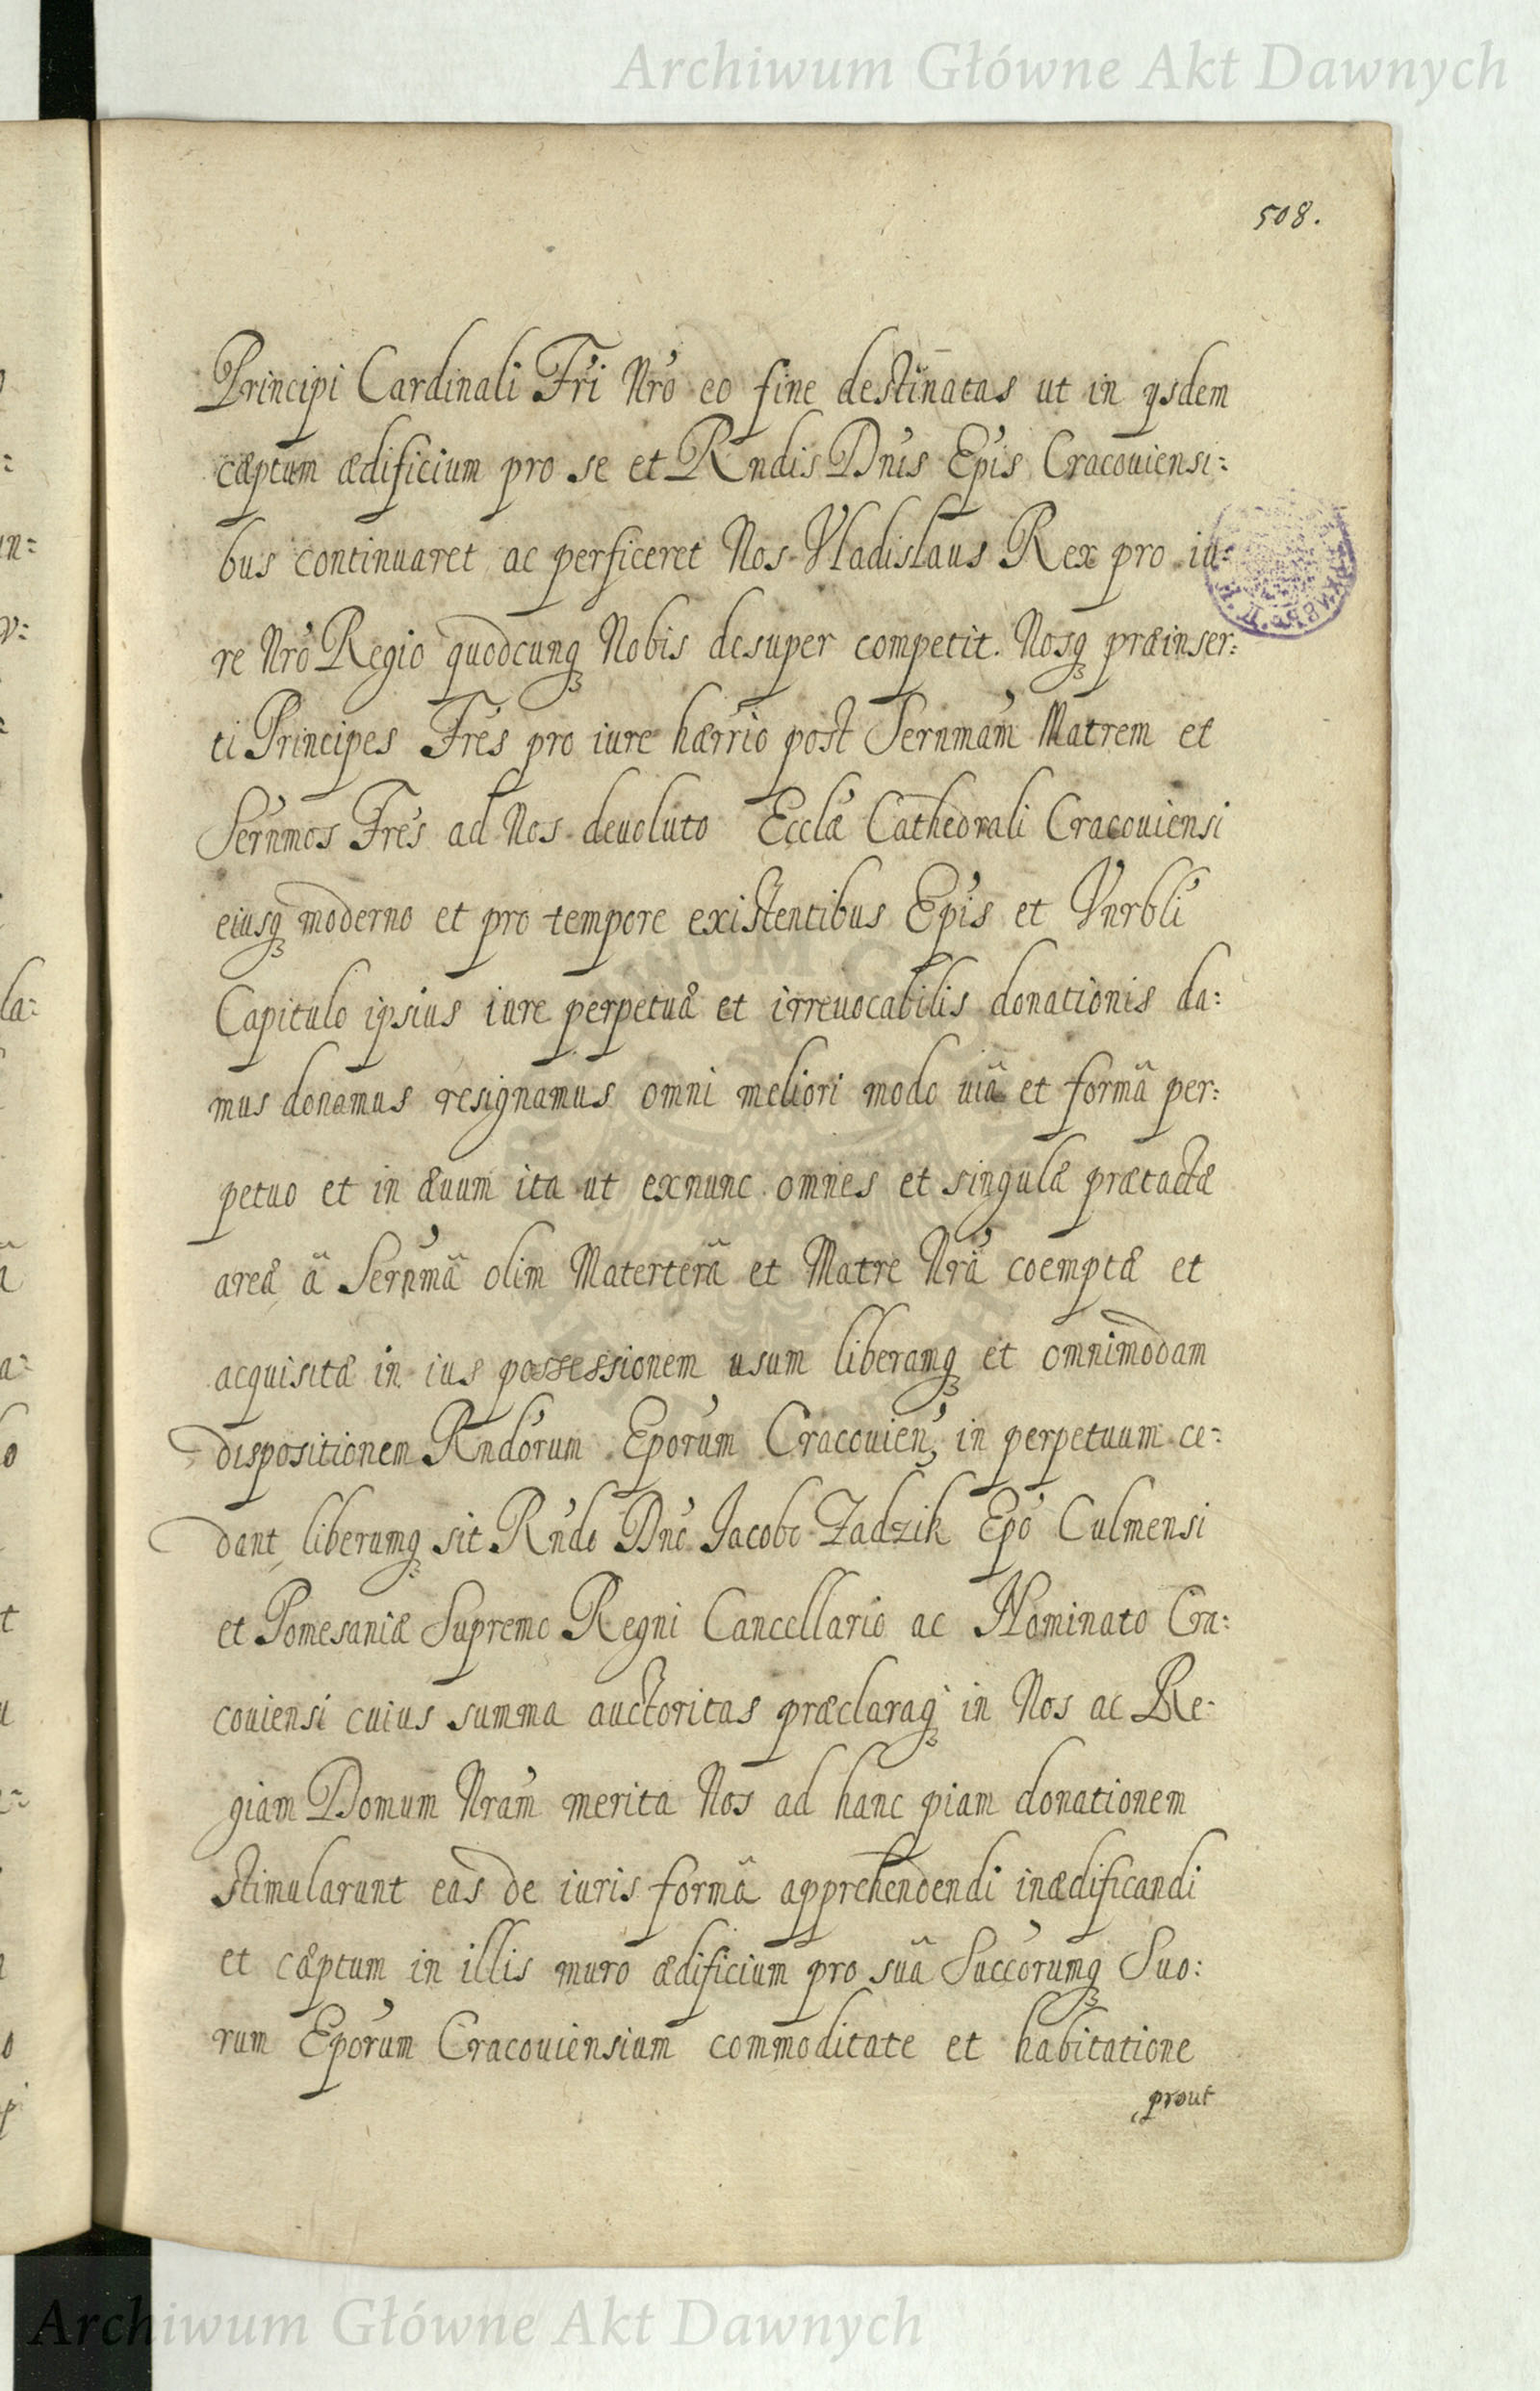 Archiwum Główne Akt Dawnych
508.
Principi Cardinali Fri Nro eo fine destinatas ut in ysdem
cæptum ædificium pro se et Rndis Dnis Epis Cracouiensi:
bus continuaret ac perficeret Nos Vladislaus Rex pro iu:
re Nro Regio quodcunq Nobis desuper competit. Nosq præinser:
ti Principes Fres pro iure hærrio post Sernmam Matrem et
Sernmos Fres ad Nos deuoluto Ecclæ Cathedrali Cracouiensi
eiusq moderno et pro tempore existentibus Epis et Vnrbli
Capitulo ipsius iure perpetuæ et irreuocabilis donationis da:
mus donamus resignamus omni meliori modo uiâ et formâ per:
petuo et in æuum ita ut exnunc omnes et singulæ prætactæ
areæ â Sernmâ olim Materterâ et Matre Nrâ coemptæ et
acquisitæ in ius possessionem usum liberamq et omnimodam
dispositionem Rndorum Eporum Cracouien, in perpetuum ce:
dant, liberumq sit Rndo Dno Jacobo Zadzik Epo Culmensi
et Pomesaniæ Supremo Regni Cancellario ac Nominato Cra:
couiensi cuius summa auctoritas præclaraq in Nos ac Re:
giam Domum Nram merita Nos ad hanc piam donationem
stimularunt eas de iuris formâ apprehendendi inædificandi
et cæptum in illis muro ædificium pro suâ Succorumq Suo:
rum Eporum Cracouiensium commoditate et habitatione
prout
Archiwum Główne Akt Dawnych